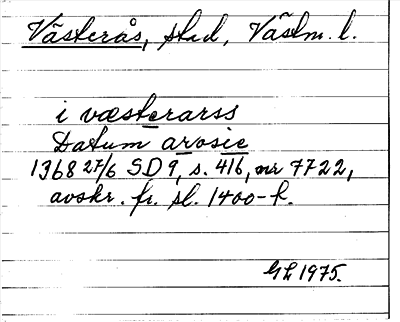 Västerås, stad, Västm. l.
i væsterarss
Datum arosie
1368 27/6 SD 9, s. 416, nr 7722,
avskr. fr. sl. 1400-t.
GL 1975.